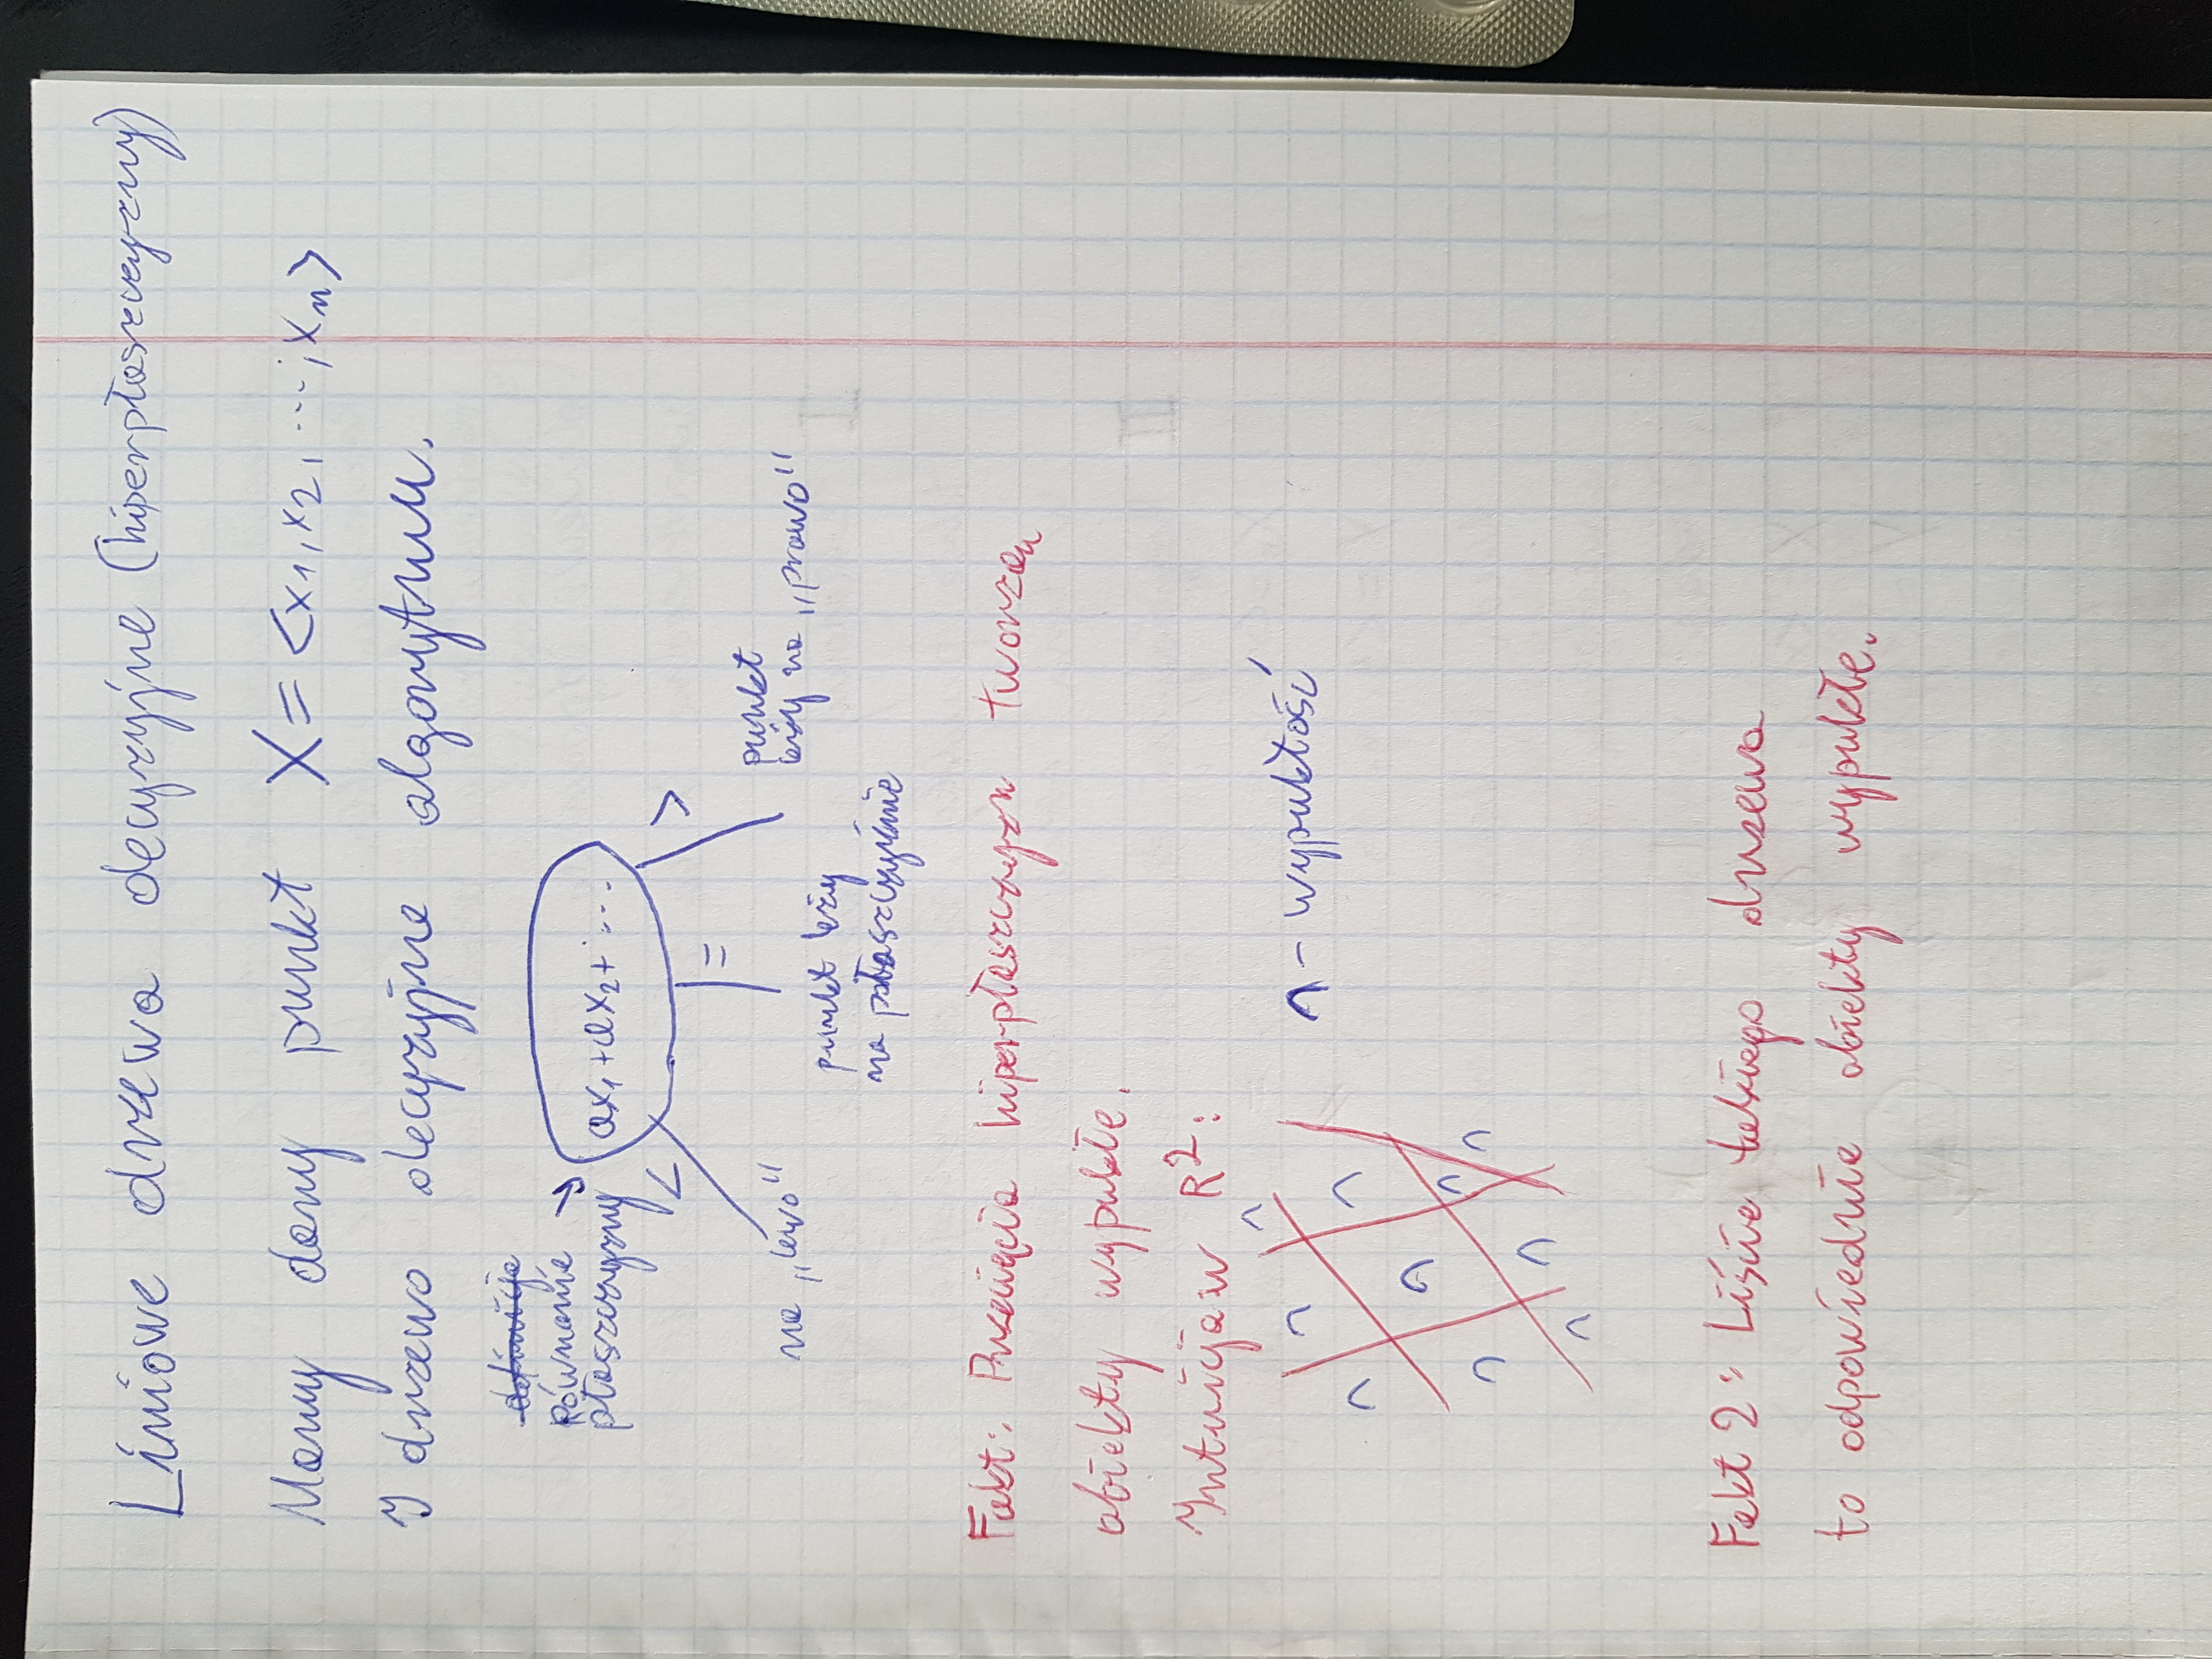 Liniowe drzewa decyzyjne (hiperpłaszczyzny)
Mamy dany punkt X = <x1, x2, ..., xn>
I drzewo decyzyjne algorytmu.
definicja
Równanie
płaszczyzny
ax1 + ax2 + ...
<
=
>
na „lewo"
punkt leży
na płaszczyźnie
punkt
leży na „prawo"
Fakt: Przecięcia hiperpłaszczyzn tworzą
obiekty wypukłe.
Intuicja w R²:
∩ - wypukłość
Fakt 2: Liście takiego drzewa
to odpowiednie obiekty wypukłe.